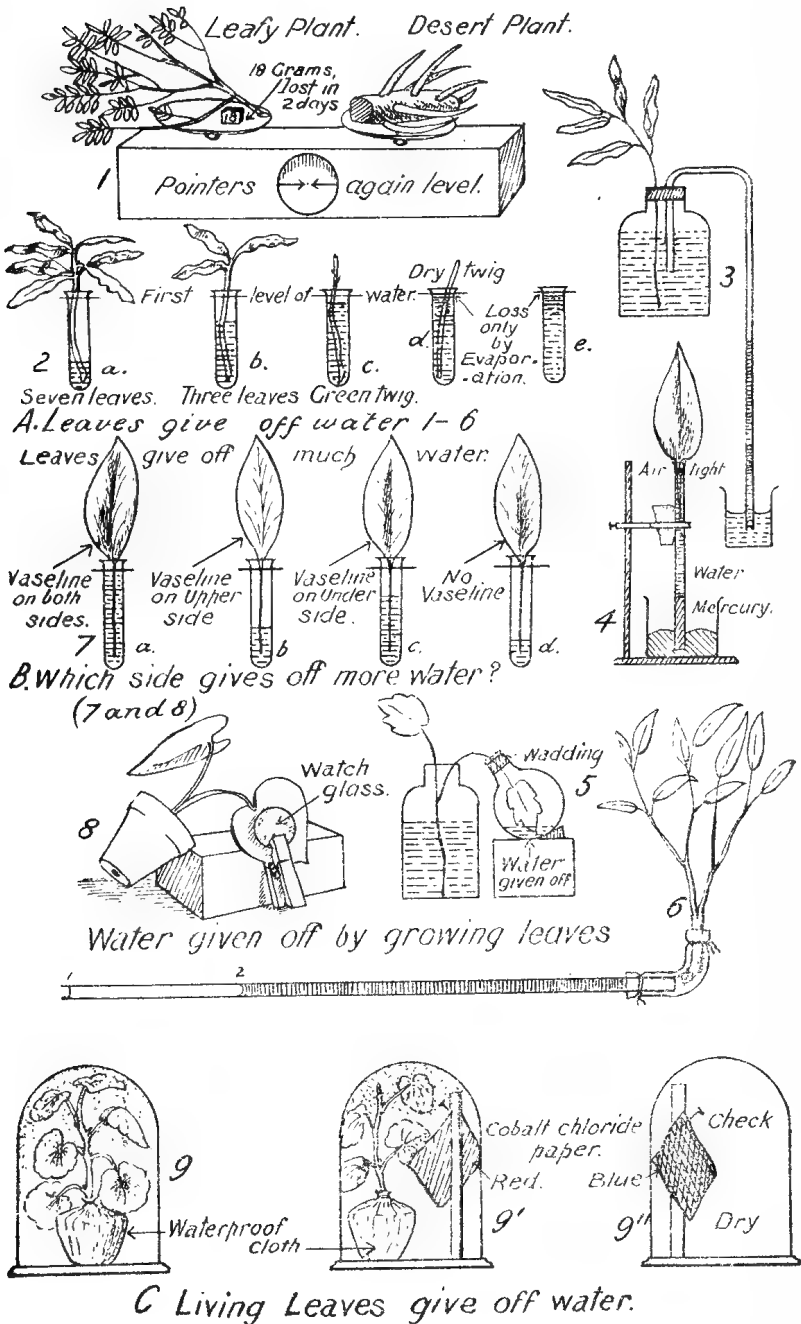 Leafy Plant. Desert Plant.
18 Grams,
lost in
2 days
18
1
Pointers again level.
3
Dry twig
First level of water.
Loss
only
by
Evapor-
-ation.
2 a. b. c. d e.
Seven leaves. Three leaves Green twig.
A. Leaves give off water 1-6
Leaves give off much water.
Air tight
Water
Mercury.
4
Vaseline
on both
sides.
Vaseline
on Upper
side
Vaseline
on Under
side.
No
Vaseline
7 a. b c. d.
B. Which side gives off more water?
(7 and 8)
Watch
glass.
8
Wadding
5
Water
given off
6
Water given off by growing leaves
1 2
9
Waterproof
cloth
Cobalt chloride
paper.
Red.
9'
Check
Blue
9"
Dry
C Living Leaves give off water.